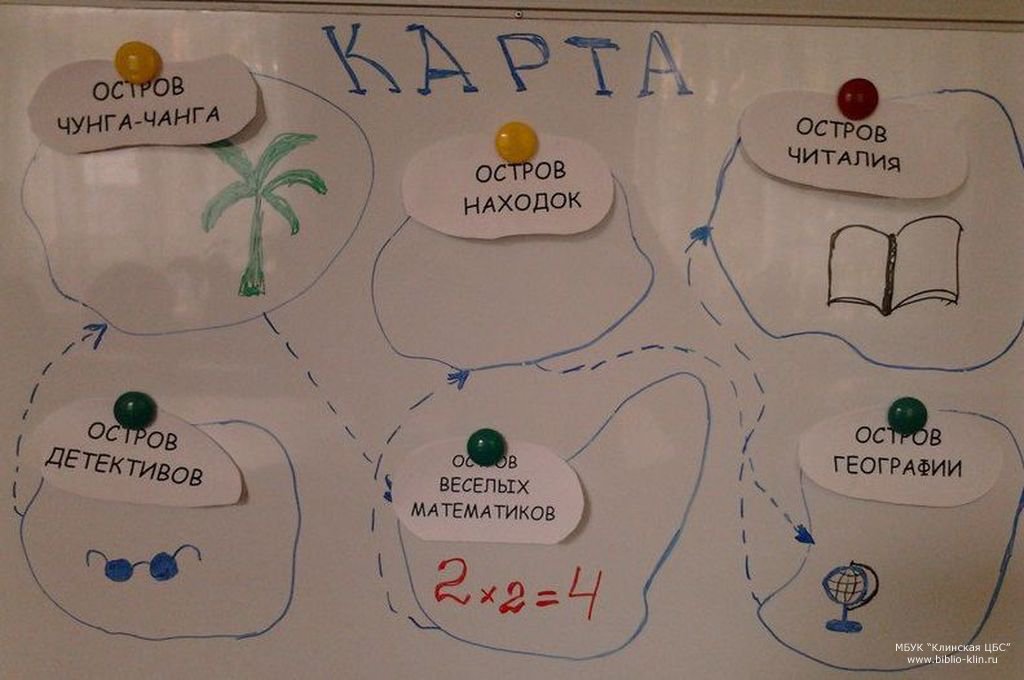 КАРТА
ОСТРОВ
ЧУНГА-ЧАНГА
ОСТРОВ
НАХОДОК
ОСТРОВ
ЧИТАЛИЯ
ОСТРОВ
ДЕТЕКТИВОВ
ОСТРОВ
ВЕСЕЛЫХ
МАТЕМАТИКОВ
2×2=4
ОСТРОВ
ГЕОГРАФИИ
МБУК "Клинская ЦБС"
www.biblio-klin.ru